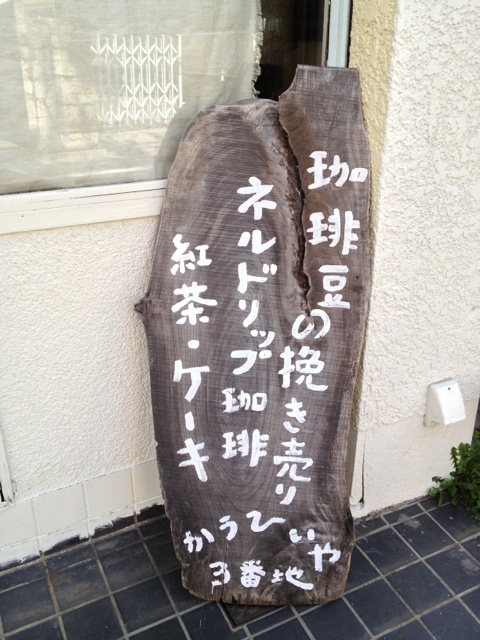 珈琲豆の挽き売り
ネルドリップ珈琲
紅茶・ケーキ
かうひいや
3番地